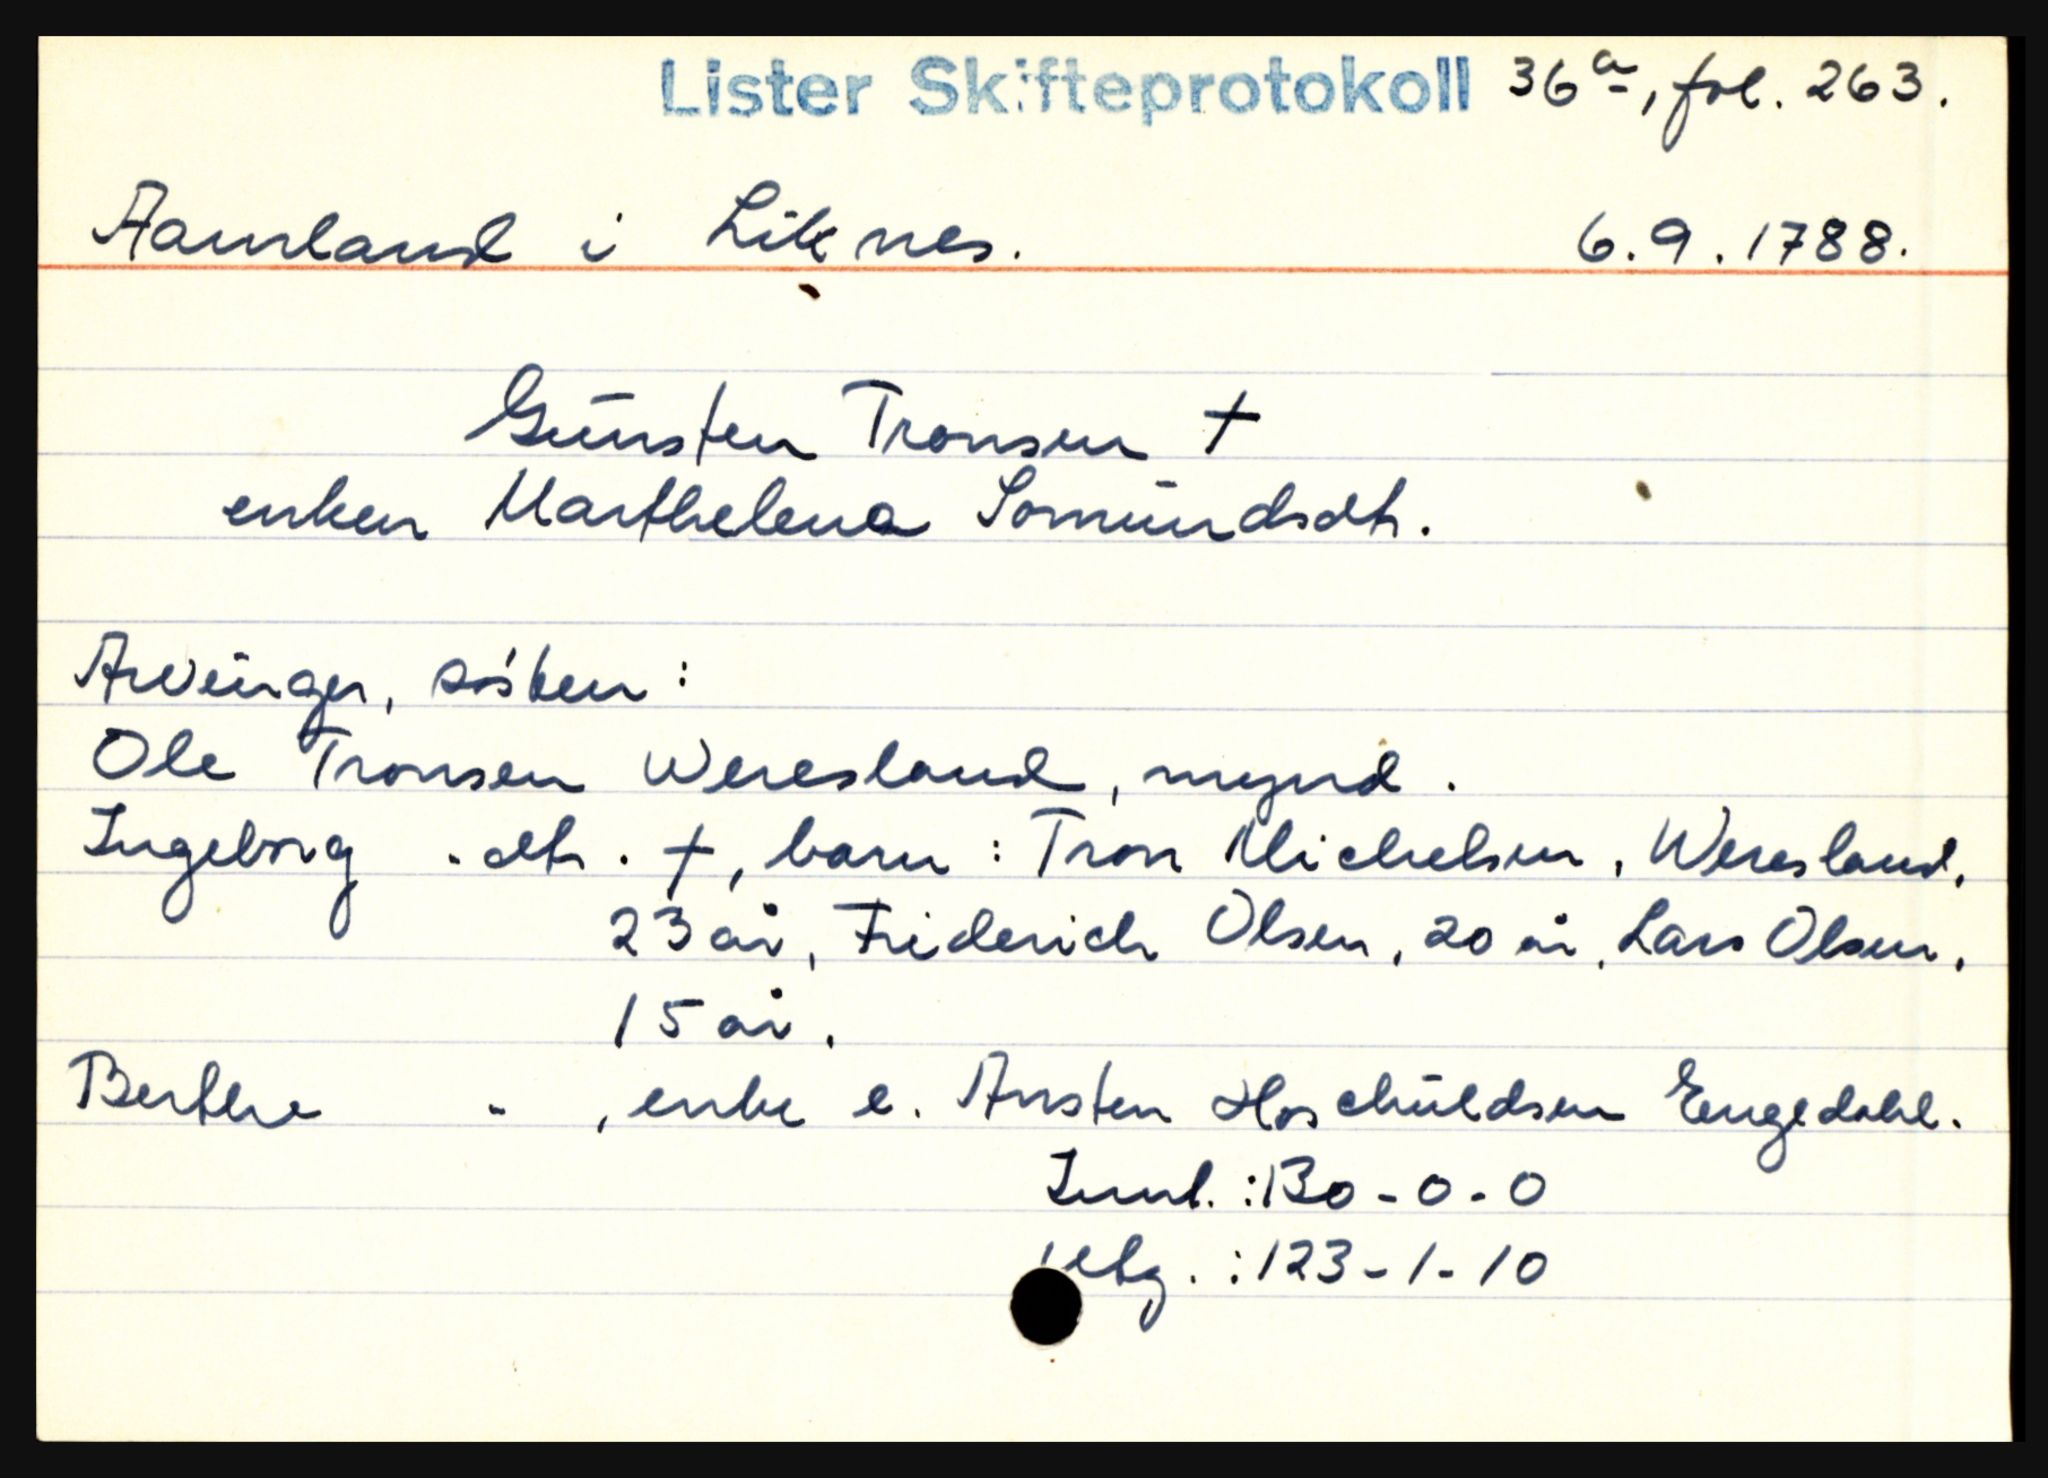 Lister Skifteprotokoll 36a, fol. 263.
Aamland i Liknes. 6.9.1788.
Gunsten Tronsen †
enken Marthelena Somundsdtr.
Arvinger, søsken:
Ole Tronsen Weresland, mynd.
Ingeborg - dtr. †, barn: Tron Michelsen, Weresland,
23 år, Friderich Olsen, 20 år, Lars Olsen,
15 år.
Berthe - , enke e. Ansten Hoschuldsen Engedahl.
Innt.: 130-0-0
Utg.: 123-1-10